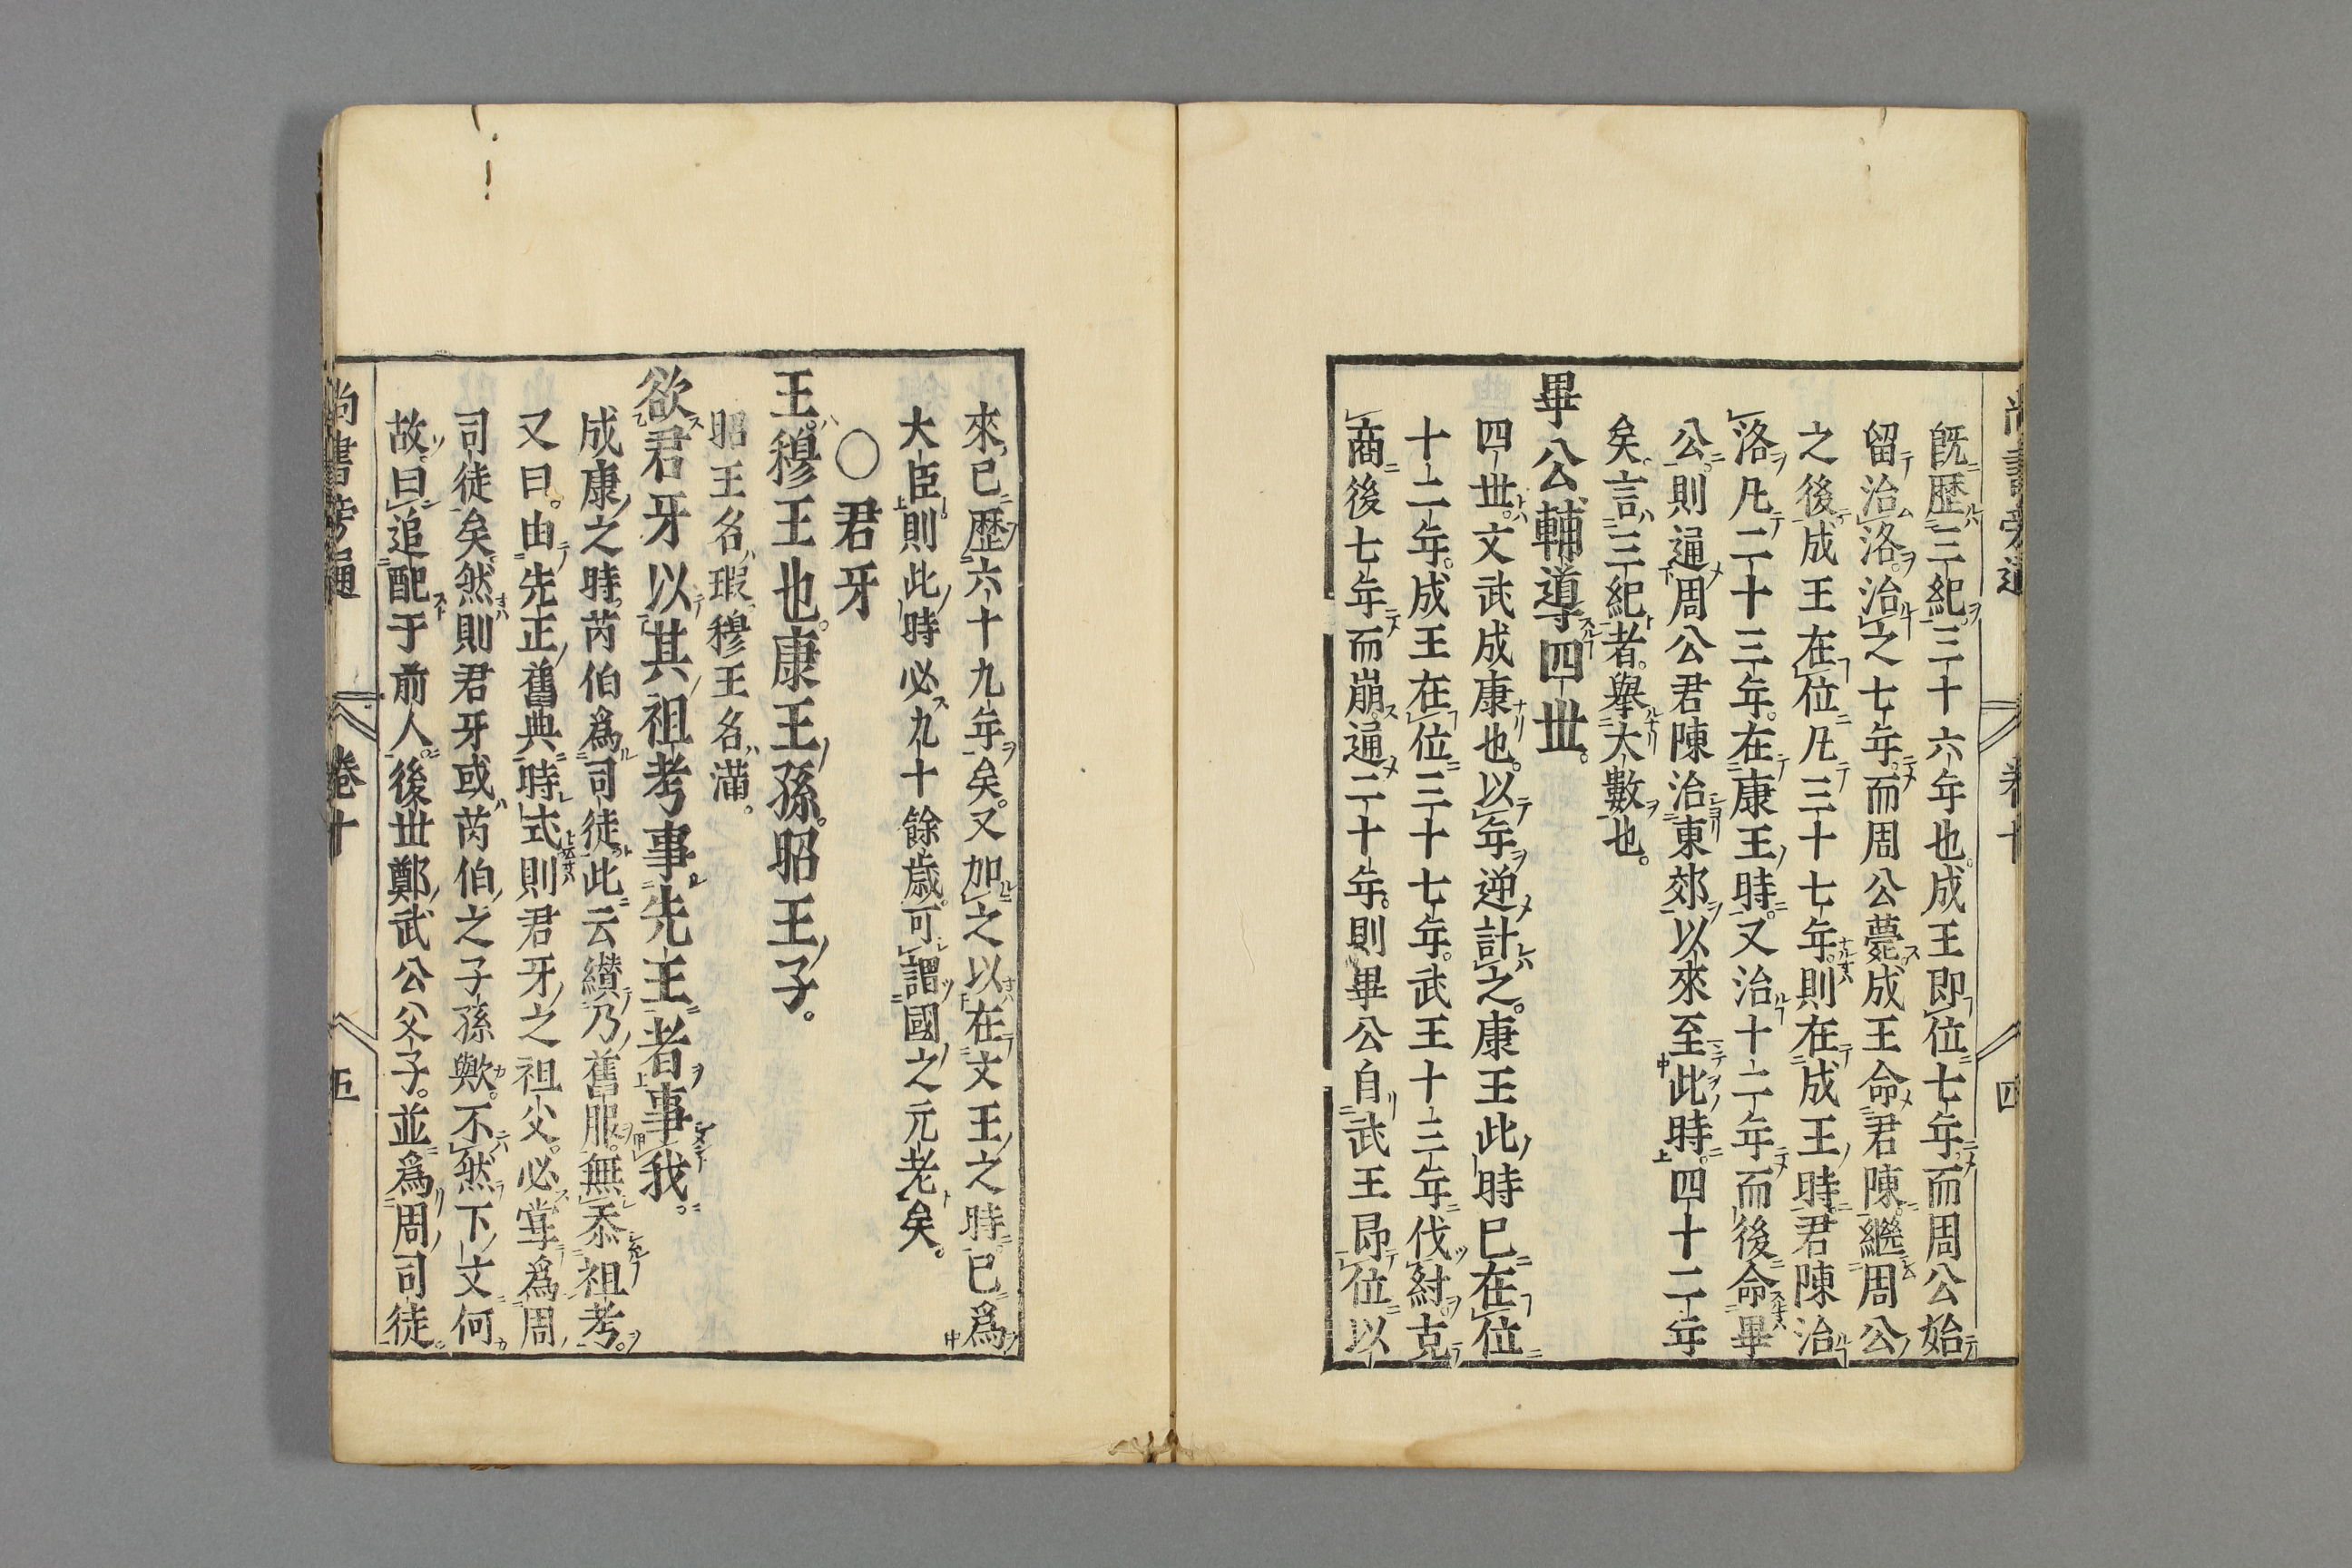 尚書旁通 卷十 四
既歴三紀三十六年也。成王即位七年而周公始
留治洛。治之七年。而周公薨成王命君陳繼周公
之後成王在位凡三十七年。則在成王時君陳治
洛凡二十三年。在康王時。又治十二年而後命畢
公則通周公君陳治東郊以來至此時四十二年
矣。言三紀者。舉大數也。
畢公輔導四丗。
四丗。文武成康也。以年逆計之。康王此時已在位
十二年。成王在位三十七年。武王十三年伐紂克
商後七年而崩。通二十年。則畢公自武王即位以
來已歴六十九年矣。又加之以在文王之時已爲
大臣則此時必九十餘歳。可謂國之元老矣。
○君牙
王穆王也。康王孫。昭王子。
昭王名瑕穆王名滿。
欲君牙以其祖考事先王者事我。
成康之時芮伯爲司徒此云纉乃舊服。無忝祖考。
又曰。由先正舊典時式則君牙之祖父。必掌爲周
司徒矣然則君牙或芮伯之子孫歟。不然下文何
故曰追配于前人。後丗鄭武公父子。並爲周司徒
尚書旁通 卷十 五